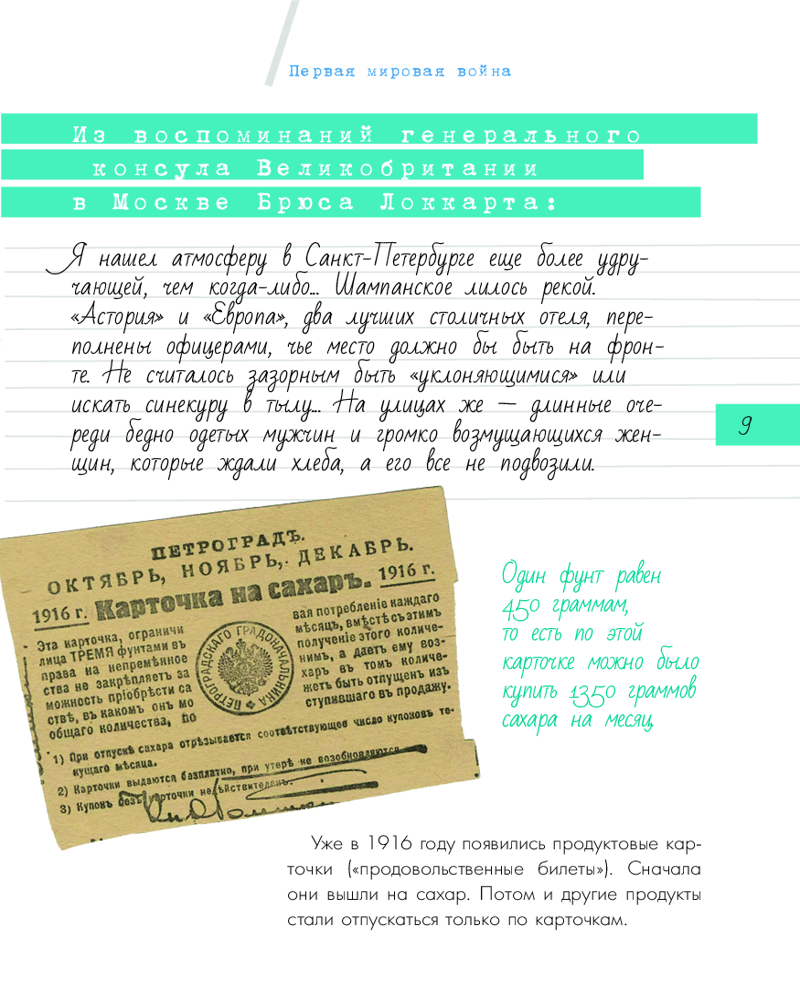 Первая мировая война
Из воспоминаний генерального
консула Великобритании
в Москве Брюса Локкарта:
Я нашел атмосферу в Санкт-Петербурге еще более удру-
чающей, чем когда-либо... Шампанское лилось рекой.
«Астория» и «Европа», два лучших столичных отеля, пере-
полнены офицерами, чье место должно бы быть на фрон-
те. Не считалось зазорным быть «уклоняющимися» или
искать синекуру в тылу... На улицах же — длинные оче-
реди бедно одетых мужчин и громко возмущающихся жен-
щин, которые ждали хлеба, а его все не подвозили.
9
ПЕТРОГРАДЪ.
ОКТЯБРЬ, НОЯБРЬ, ДЕКАБРЬ.
1916 г. Карточка на сахаръ. 1916 г.
Эта карточка, ограничи
лица ТРЕМЯ фунтами въ
права на непремѣнное
ства не закрѣпляетъ за
можность пріобрѣсти са
ствѣ, въ какомъ онъ мо
общаго количества, по
ПЕТРОГРАДСКАГО ГРАДОНАЧАЛЬНИКА
вая потребленіе каждаго
мѣсяцъ, вмѣстѣ съ тѣмъ
полученіе этого количе-
нимъ, а даетъ ему воз-
харъ въ томъ количе-
жетъ быть отпущенъ изъ
ступившаго въ продажу.
1) При отпускѣ сахара отрѣзывается соотвѣтствующее число купоновъ те-
кущаго мѣсяца.
2) Карточки выдаются безплатно, при утерѣ не возобновляются
3) Купонъ безъ карточки недѣйствителенъ.
Один фунт равен
450 граммам,
то есть по этой
карточке можно было
купить 1350 граммов
сахара на месяц
Уже в 1916 году появились продуктовые кар-
точки («продовольственные билеты»). Сначала
они вышли на сахар. Потом и другие продукты
стали отпускаться только по карточкам.